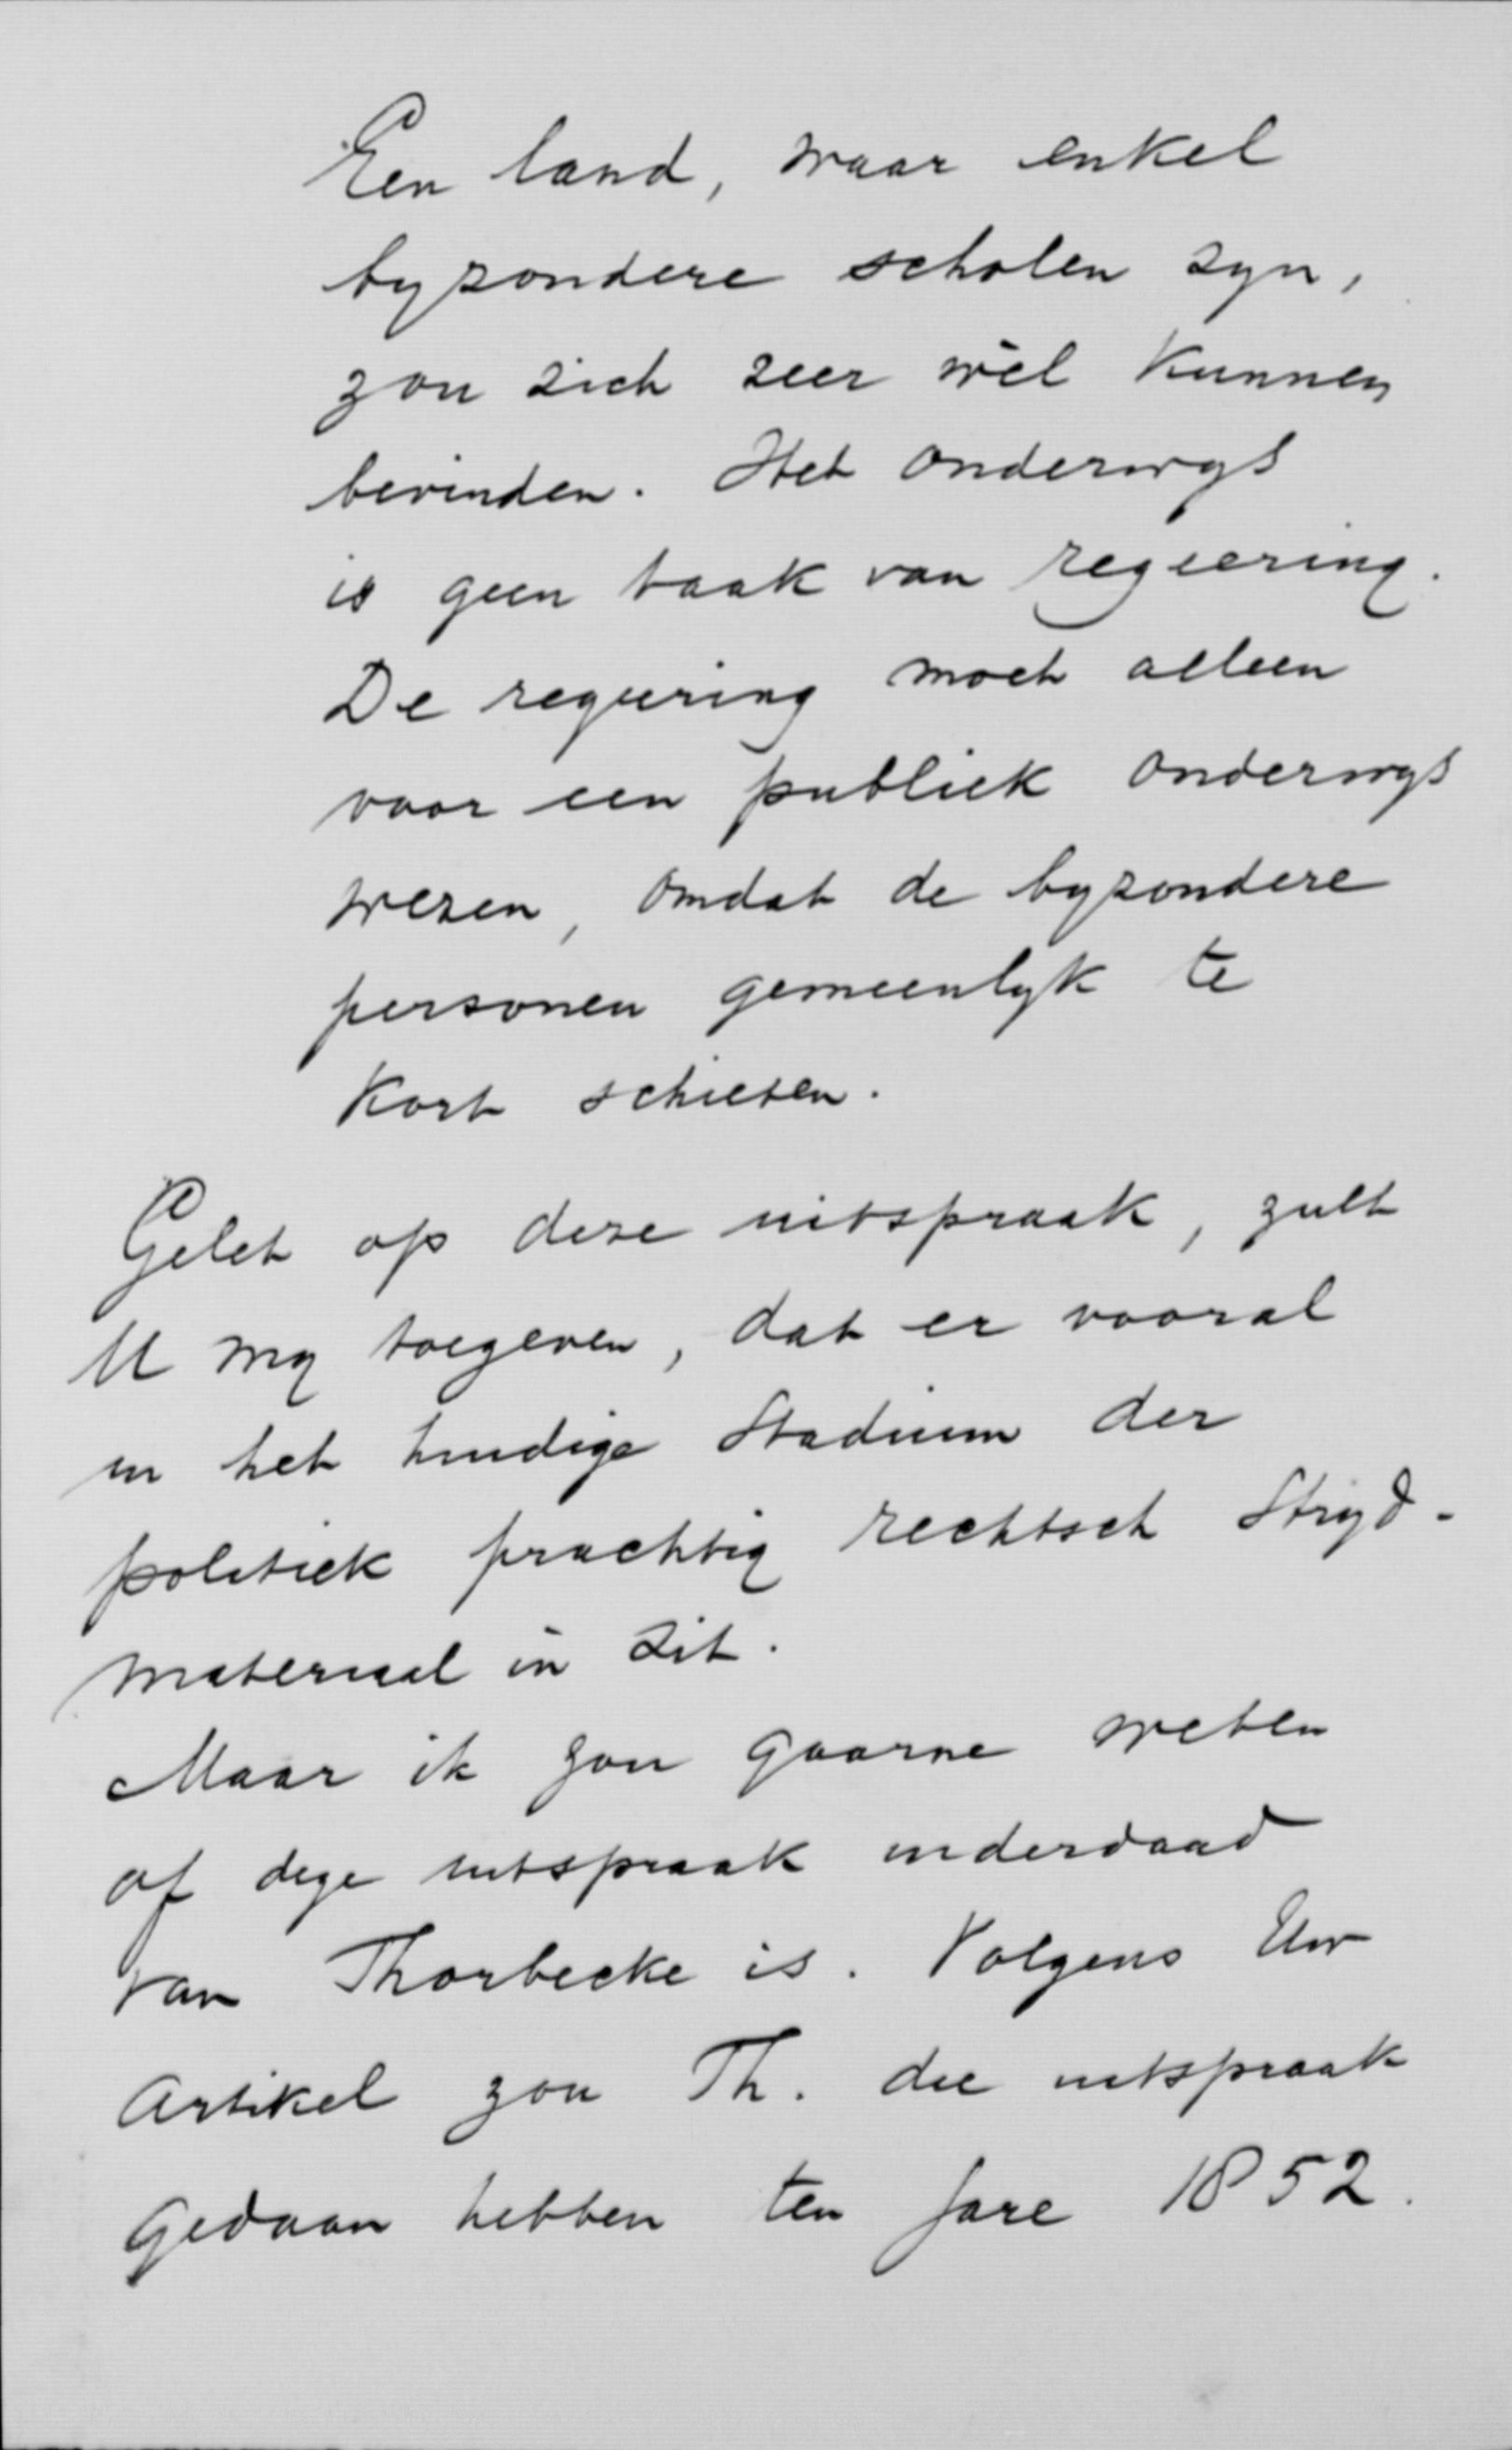 Een land, waar enkel
byzondere scholen zyn,
zou zich zeer wèl kunnen
bevinden. Het onderwys
is geen taak van regeering.
De regeering moet alleen
voor een publiek onderwys
wezen, omdat de byzondere
personen gemeenlyk te
kort schieten.
Gelet op deze uitspraak, zult
U my toegeven, dat er vooral
in het huidige stadium der
politiek prachtig rechtsch stryd-
materiaal in zit.
Maar ik zou gaarne weten
of deze uitspraak inderdaad
van Thorbecke is. Volgens Uw
artikel zou Th. die uitspraak
gedaan hebben ten jare 1852.